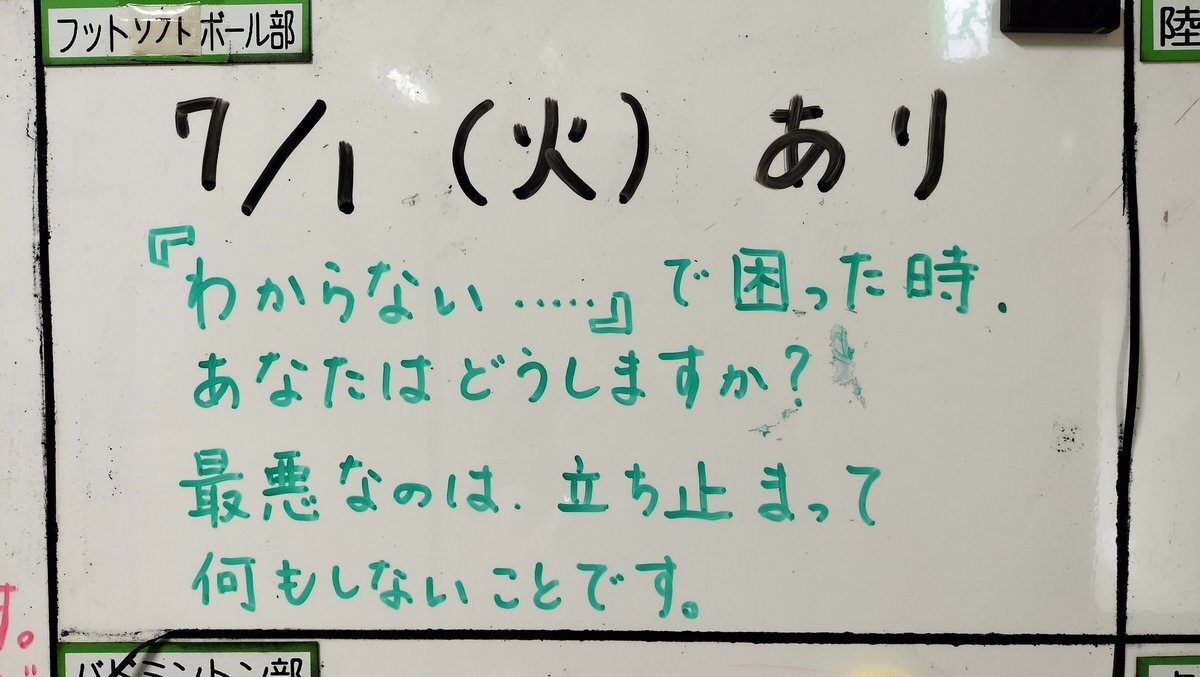 フットソフトボール部
陸
7/1 (火) あり
『わからない……』で困った時.
あなたはどうしますか?
最悪なのは. 立ち止まって
何もしないことです。
す。
バドミントン部